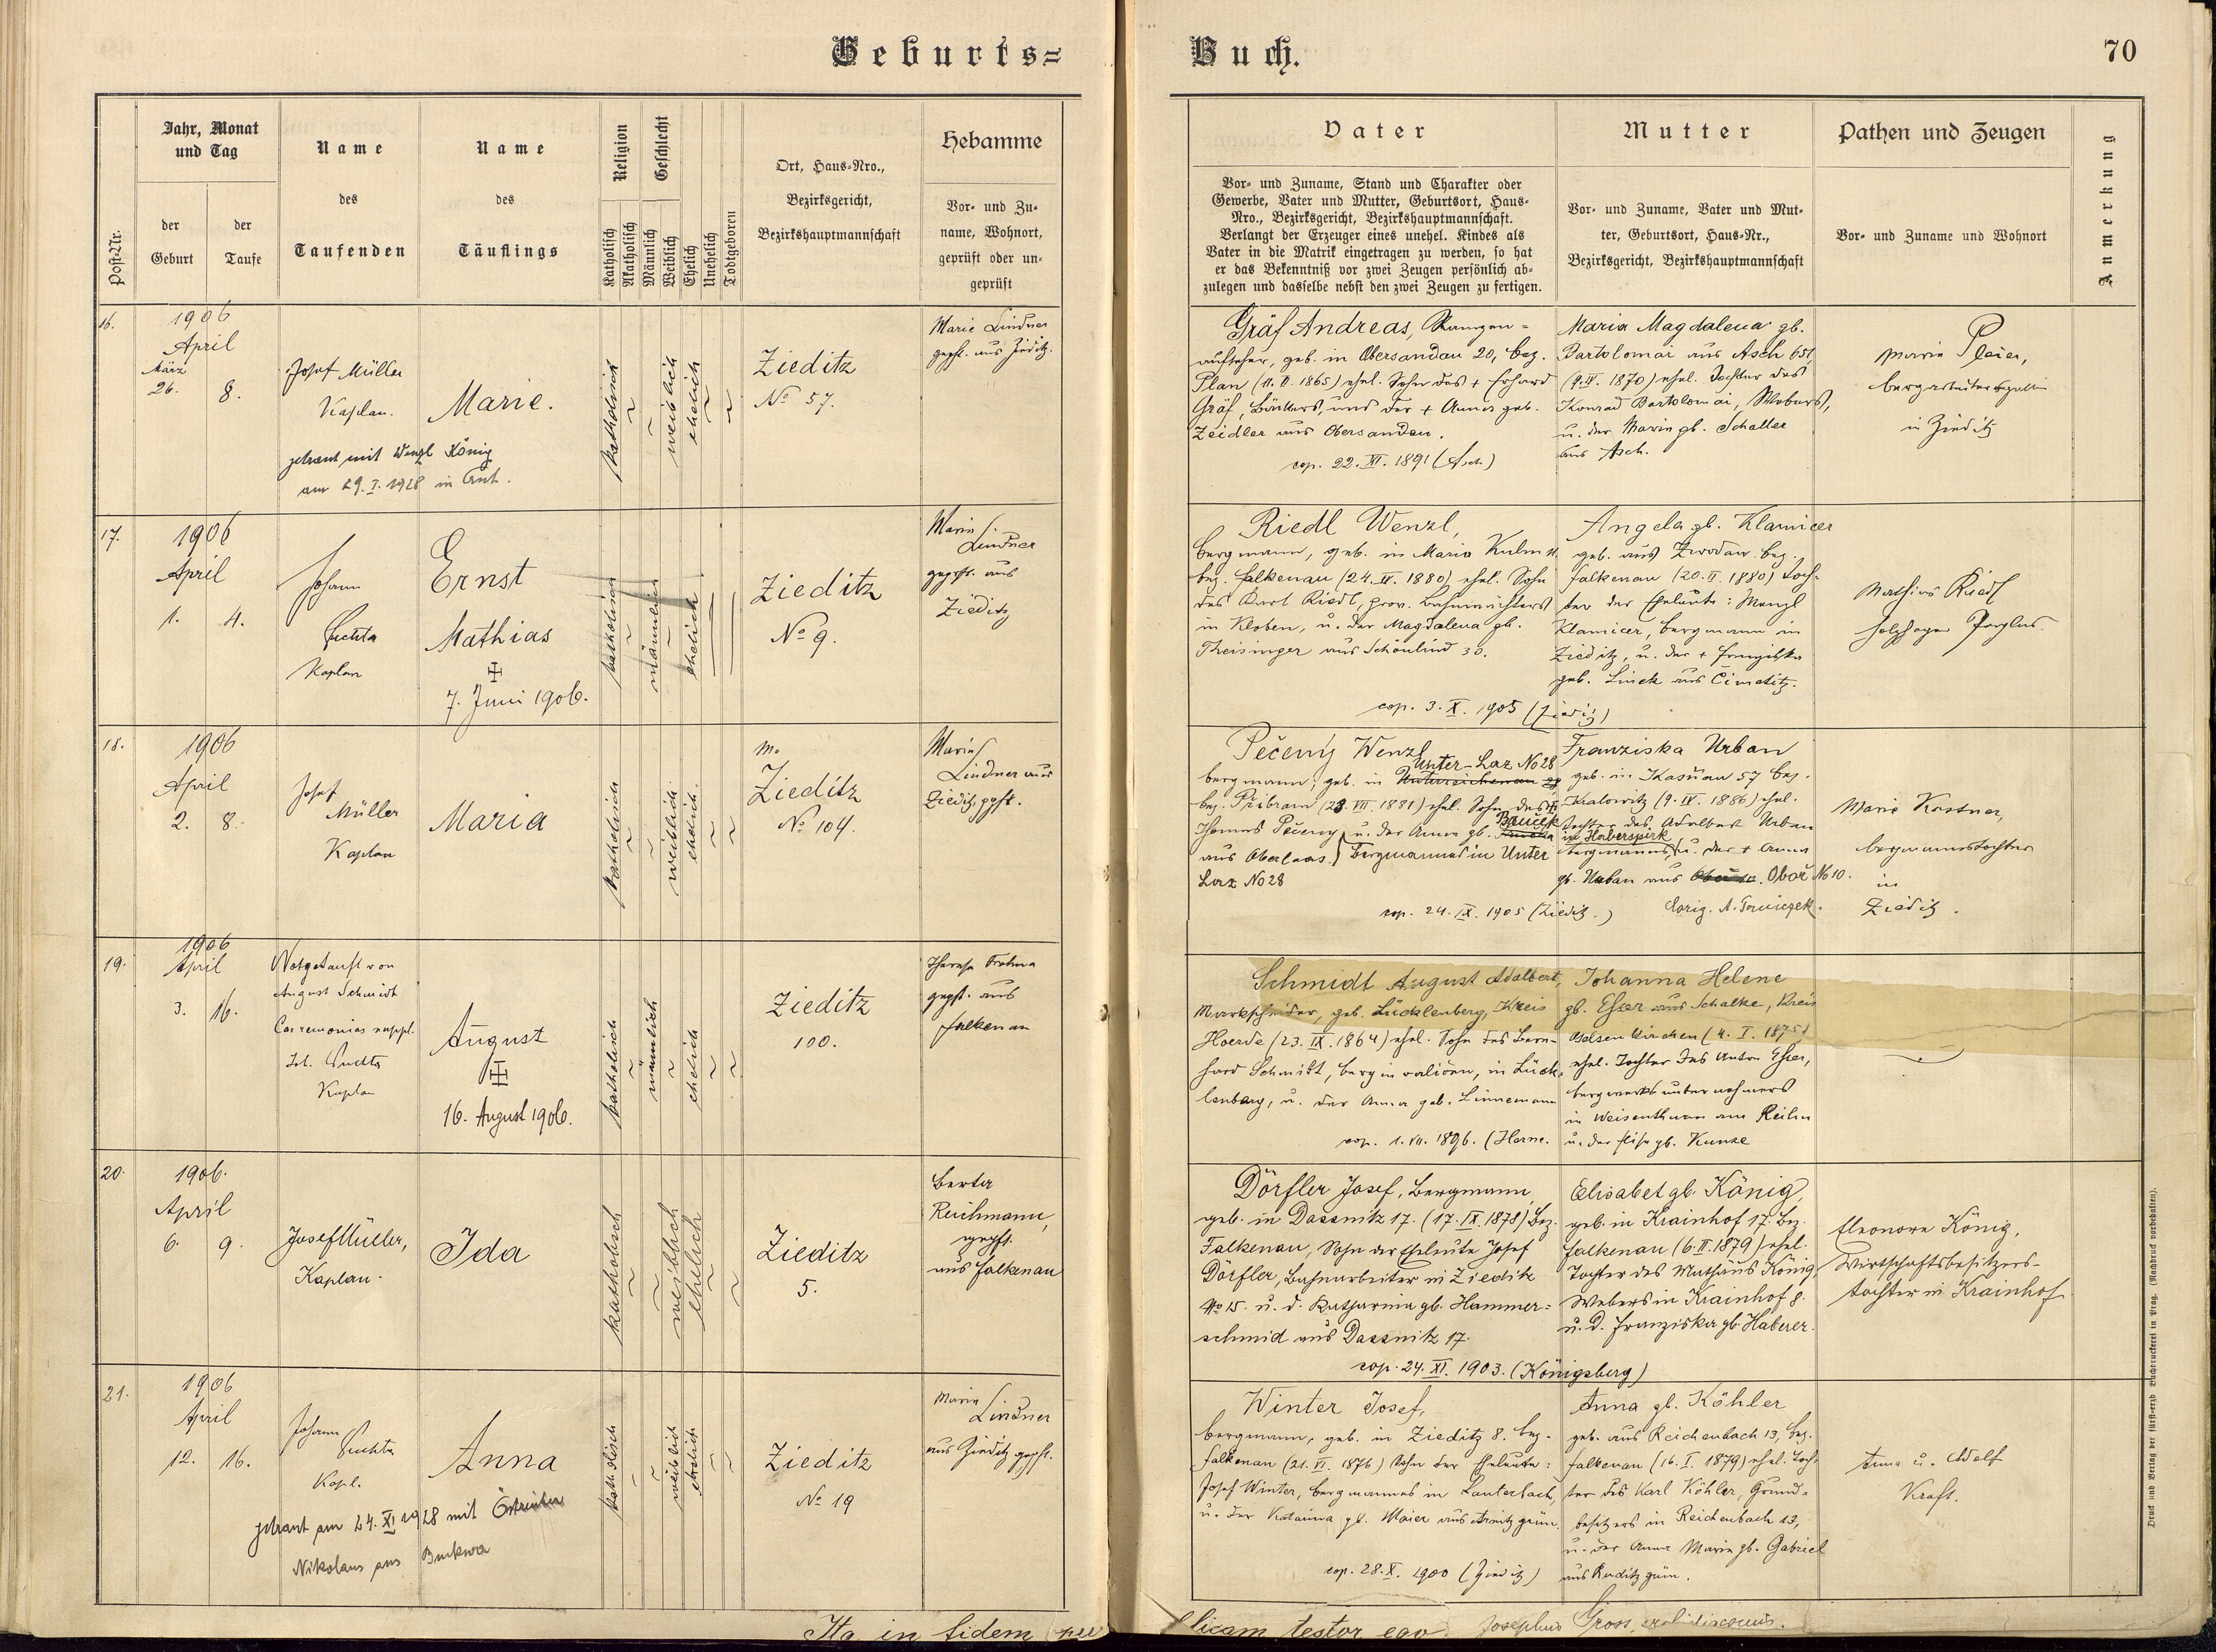 Geburts=
Buch.
70
Post-Nr.
Jahr, Monat
und Tag
der
Geburt
der
Taufe
Name
des
Taufenden
Name
des
Täuflings
Religion
Katholisch
Akatholisch
Geschlecht
Männlich
Weiblich
Ehelich
Unehelich
Todtgeboren
Ort, Haus-Nro.,
Bezirksgericht,
Bezirkshauptmannschaft
Hebamme
Vor- und Zu-
name, Wohnort,
geprüft oder un-
geprüft
Vater
Vor- und Zuname, Stand und Charakter oder
Gewerbe, Vater und Mutter, Geburtsort, Haus-
Nro., Bezirksgericht, Bezirkshauptmannschaft.
Verlangt der Erzeuger eines unehel. Kindes als
Vater in die Matrik eingetragen zu werden, so hat
er das Bekenntniß vor zwei Zeugen persönlich ab-
zulegen und dasselbe nebst den zwei Zeugen zu fertigen.
Mutter
Vor- und Zuname, Vater und Mut-
ter, Geburtsort, Haus-Nr.,
Bezirksgericht, Bezirkshauptmannschaft
Pathen und Zeugen
Vor- und Zuname und Wohnort
Anmerkung
16.
1906
April
März
26.
8.
Josef Müller
Kaplan.
Marie.
getraut mit Wenzl König
am 29. I. 1928 in
katholisch
weiblich
ehelich
Zieditz
No 57.
Marie Lindner
gepft. aus Zieditz.
Gräf Andreas,
aufseher, geb. in Obersandau 20, bez.
Plan (11. II. 1865) ehel. Sohn des + Erhard
Gräf, Bäckers, und der + Anna geb.
Zeidler aus Obersandau.
cop. 22. XI. 1891 (Asch)
Maria Magdalena gb.
Bartolomäi aus Asch 651,
(9. IV. 1870) ehel. Tochter des
Konrad Bartolomäi, Webers,
u. der Marie gb. Schaller
aus Asch.
Marie Pleier,
bergarbeitersgattin
in Zieditz
17.
1906
April
1.
4.
Johann
Suchta
Kaplan
Ernst
Mathias
7. Juni 1906.
katholisch
männlich
ehelich
Zieditz
No 9.
Marie
Lindner
gepft. aus
Zieditz
Riedl Wenzl,
bergmann, geb. in Maria Kulm
bez. Falkenau (24. IV. 1880) ehel. Sohn
des Karl Riedl, prov. Bahnwächters
in Kloben, u. der Magdalena gb.
Theisinger aus Schönlind 30.
cop. 3. X. 1905 (Zieditz)
Angela gb. Klamicer
geb. aus Zwodau bez.
Falkenau (20. II. 1880) Toch-
ter der Eheleute: Wenzl
Klamicer, bergmann in
Zieditz, u. der + Franziska
geb. Linek aus Čimelitz.
Mathias Riedl
Perglas.
18.
1906
April
2.
8.
Josef
Müller
Kaplan
Maria
katholisch
weiblich
ehelich
Zieditz
No 104.
Marie
Lindner aus
Zieditz, gpft.
Pečeny Wenzl
Unter-Laz No 28
bergmann, geb. in
bez. Přibram (23. VII. 1881) ehel. Sohn des
Thomas Pečeny u. der Anna gb. Brucek
aus Oberlaas. Bergmannes in Unter
Laz No 28
cop. 24. IX. 1905 (Zieditz.)
Franziska Urban
geb. in Kasňau 57 bez.
Kralowitz (9. IV. 1886) ehel.
Tochter des Adalbert Urban
in Haberspirk
bergmanns, u. der + Anna
gb. Urban aus Obor No 10.
Marie Kastner,
bergmannstochter
in
Zieditz.
19.
1906
April
3.
16.
Notgetauft von
August Schmidt
Caeremonias suppl.
Joh. Suchta
Kaplan
August
16. August 1906.
katholisch
männlich
ehelich
Zieditz
100.
gepft. aus
Falkenau
Schmidt August Adalbert,
Markscheider, geb. Lücklenberg, Kreis
Hoerde (23. IX. 1864) ehel. Sohn des Bern-
hard Schmidt, berginvaliden, in Lück-
lenberg, u. der Anna geb. Linnemann
cop. 1. VII. 1896. (Herne.
Johanna Helene
gb. Esser aus Schalke, Kreis
Gelsenkirchen (4. I. 1875)
ehel. Tochter des Anton Esser,
bergwerksunternehmers
in Weisenthurm am Reihn
u. der Elise gb. Kunze
20.
1906.
April
6.
9.
Josef Müller,
Kaplan.
Ida
katholisch
weiblich
ehelich
Zieditz
5.
Berta
Reichmann,
gepft.
aus Falkenau
Dörfler Josef, Bergmann,
geb. in Dassnitz 17. (17. IX. 1878) Bez.
Falkenau, Sohn der Eheleute Josef
Dörfler, Bahnarbeiter in Zieditz
No 15. u. d. Katharina gb. Hammer=
schmid aus Dassnitz 17.
cop. 24. XI. 1903. (Königsberg)
Elisabet gb. König,
geb. in Krainhof 17. Bez.
Falkenau (6. II. 1879) ehel.
Tochter des Mathäus König,
Webers in Krainhof 8.
u. d. Franziska gb. Haberer.
Eleonora König,
Wirtschaftsbesitzers-
tochter in Krainhof
21.
1906
April
12.
16.
Johann
Suchta
Kapl.
Anna
getraut am 24. XI 1928 mit
Nikolaus aus Buckwa
katholisch
weiblich
ehelich
Zieditz
No 19
Marie
Lindner
aus Zieditz gepft.
Winter Josef,
bergmann, geb. in Zieditz 8. bez.
Falkenau (21. VI. 1876) Sohn der Eheleute:
Josef Winter, bergmannes in Lauterbach,
u. der Katarina gb. Maier aus
cop. 28. X. 1900 (Zieditz)
Anna gb. Köhler
geb. aus Reichenbach 13, bez.
Falkenau (16. I. 1879) ehel. Toch-
ter des Karl Köhler, Grund-
besitzers in Reichenbach 13,
u. der Anna Marie gb. Gabriel
aus Ruditzgrün.
Anna u. Adolf
Kraft.
Ita in fidem
testor ego Josephus Gross, archidiaconus.
Druck und Verlag der fürst-erzb. Buchdruckerei in Prag. (Nachdruck vorbehalten).